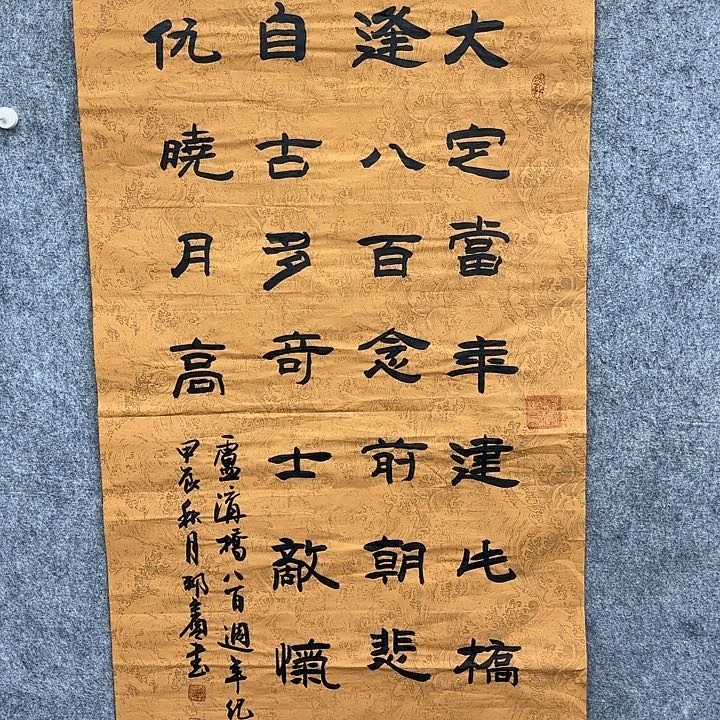 大定當年建此橋
逢八百念前朝悲
自古多奇士敵愾
仇曉月高
盧溝橋八百週年紀
甲辰秋月書